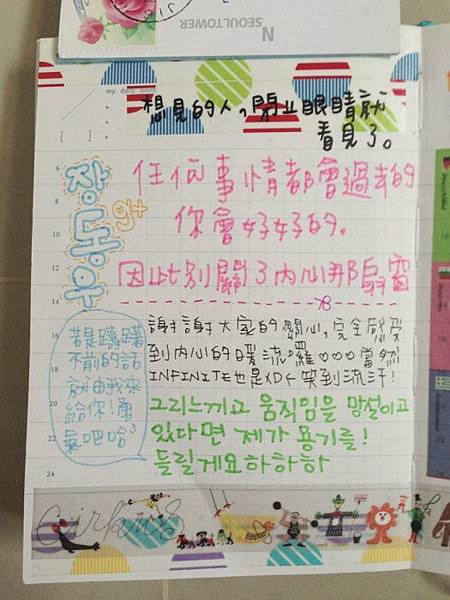 N
SEOULTOWER
my daily
想見的人,閉上眼睛就
看見了。
任何事情都會過去的
你會好好的。
因此別關了內心那扇窗
장동우
謝謝大家的關心,完全感受
到內心的暖流囉♡♡♡當然
INFINITE也是XD 笑到流汗!
若是躊躇
不前的話
就由我來
給你!勇
氣吧哈³
그리느끼고 움직임을 망설이고
있다면 제가 용기를!
들릴게요하하하
6
8
10
12
14
16
18
20
22
24